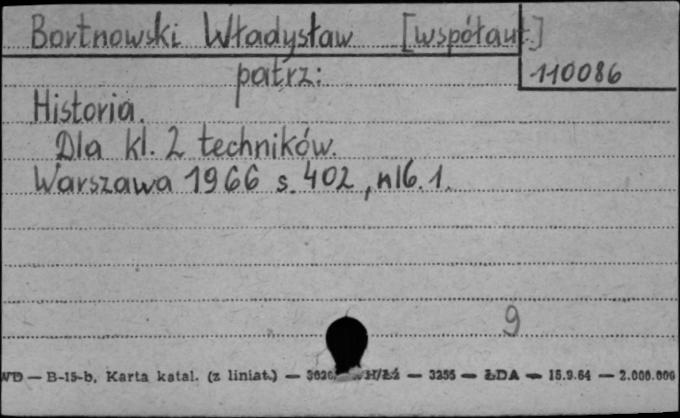 Bortnowski Władysław [współaut.]
110086
patrz:
Historia.
Dla kl. 2 techników.
Warszawa 1966 s. 402, nlb. 1.
9
WD — B-15-b, Karta katal. (z liniat.) — H/Łź — 3255 — ŁDA — 15.9.64 — 2.000.000